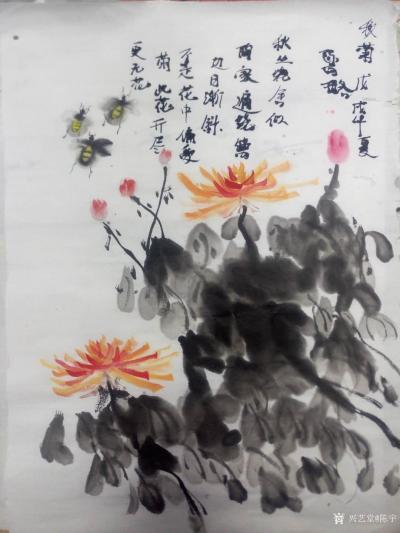 秋菊 戊戌年夏
秋丛绕舍似
陶家遍绕篱
边日渐斜
不是花中偏爱
菊此花开尽
更无花
兴艺堂@陈宇